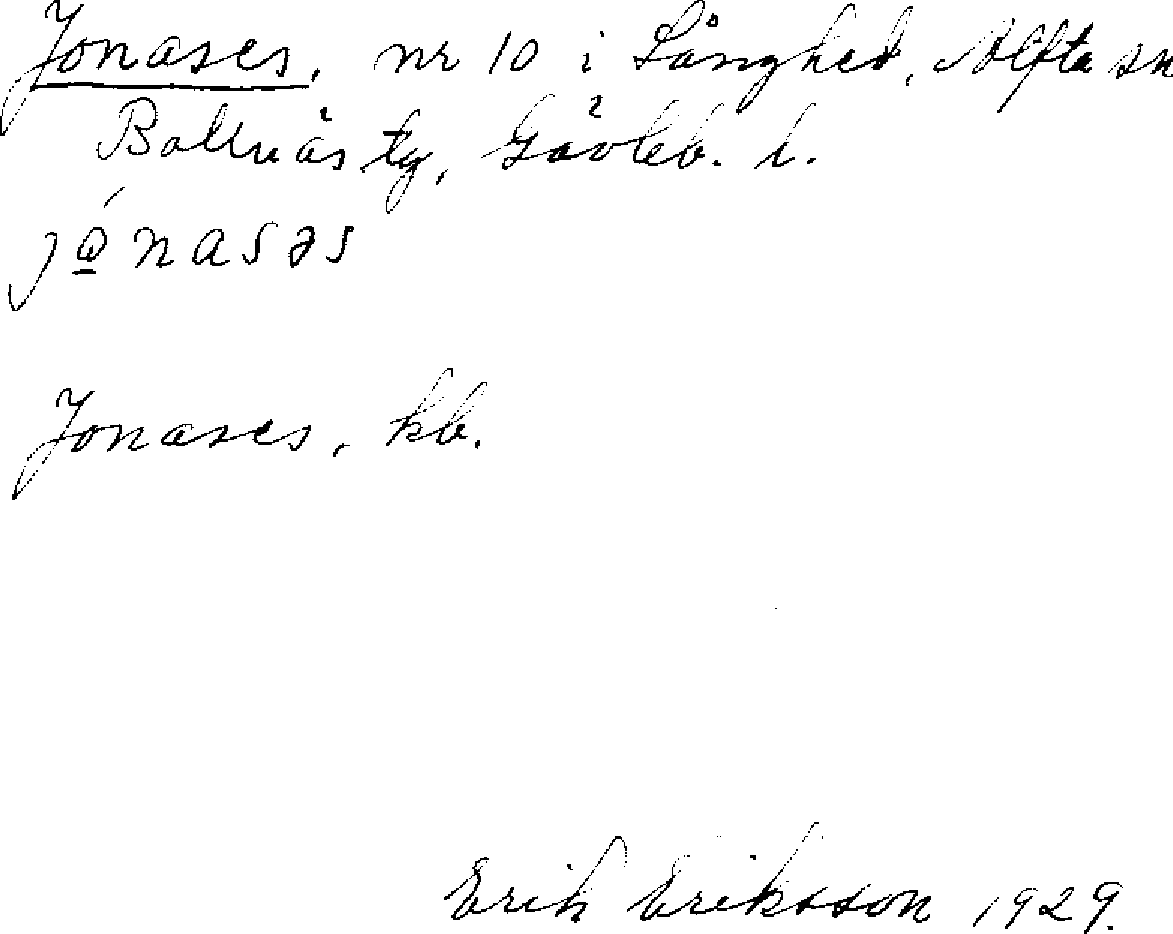 Jonases, nr 10 i Långhed, Alfta sn
Bollnäs tg, Gävleb. l.
jó̲nasəs
Jonases, kb.
Erik Eriksson 1929.